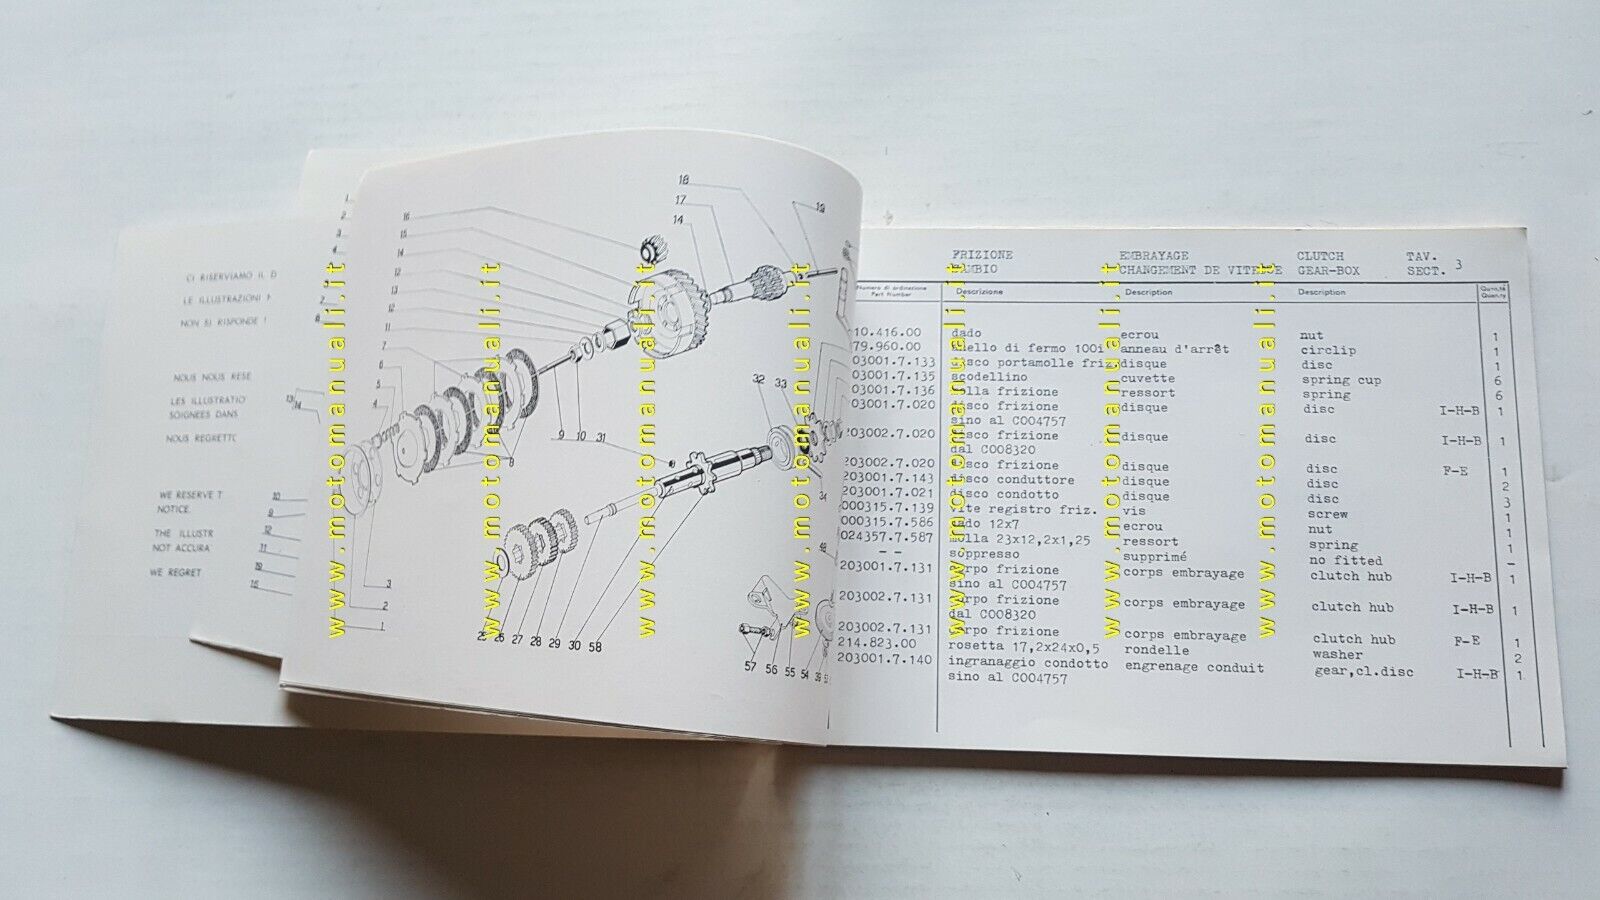 CI RISERVIAMO IL D
LE ILLUSTRAZIONI
NON SI RISPONDE
NOUS NOUS RESE
LES ILLUSTRATIO
SOIGNEES DANS
NOUS REGRETTO
WE RESERVE T
NOTICE.
THE ILLUSTR
NOT ACCURA
WE REGRET
1
2
3
4
10
9
12
11
19
15
16
15
14
12
13
12
11
7
6
5
4
18
17
14
19
8
9 10 31
32 33
34
3
2
1
25 26 27 28 29 30 58
57 56 55 54
48
www.motomanuali.it
www.motomanuali.it
www.motomanuali.it
www.motomanuali.it
www.motomanuali.it
www.motomanuali.it
www.motomanuali.it
FRIZIONE EMBRAYAGE CLUTCH TAV.
CHANGEMENT DE VITESSE GEAR-BOX SECT. 3
Numero di ordinazione Descrizione Description Description Quan.tà
Part Number Quan.ty
10.416.00 dado ecrou nut 1
79.960.00 anello di fermo 100i anneau d'arrêt circlip 1
03001.7.133 disco portamolle friz. disque disc 1
03001.7.135 scodellino cuvette spring cup 6
03001.7.136 molla frizione ressort spring 6
03001.7.020 disco frizione disque disc I-H-B 1
sino al C004757
203002.7.020 disco frizione disque disc I-H-B 1
dal C008320
203002.7.020 disco frizione disque disc F-E 1
203001.7.143 disco conduttore disque disc 2
203001.7.021 disco condotto disque disc 3
000315.7.139 vite registro friz. vis screw 1
000315.7.586 dado 12x7 ecrou nut 1
024357.7.587 molla 23x12,2x1,25 ressort spring 1
-- soppresso supprimé no fitted -
203001.7.131 corpo frizione corps embrayage clutch hub I-H-B 1
sino al C004757
203002.7.131 corpo frizione corps embrayage clutch hub I-H-B 1
dal C008320
203002.7.131 corpo frizione corps embrayage clutch hub F-E 1
214.823.00 rosetta 17,2x24x0,5 rondelle washer 2
203001.7.140 ingranaggio condotto engrenage conduit gear,cl.disc I-H-B 1
sino al C004757